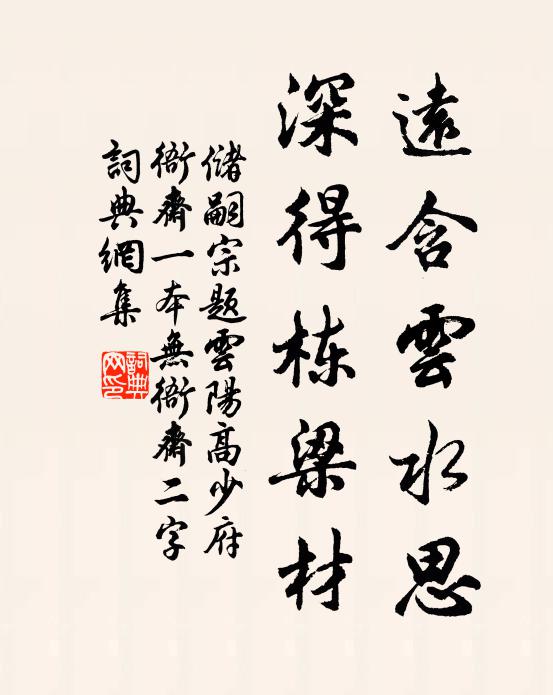 遠含雲水思
深得棟梁材
儲嗣宗題雲陽高少府
衙齋一本無衙齋二字
詞典網集
詞典
网印